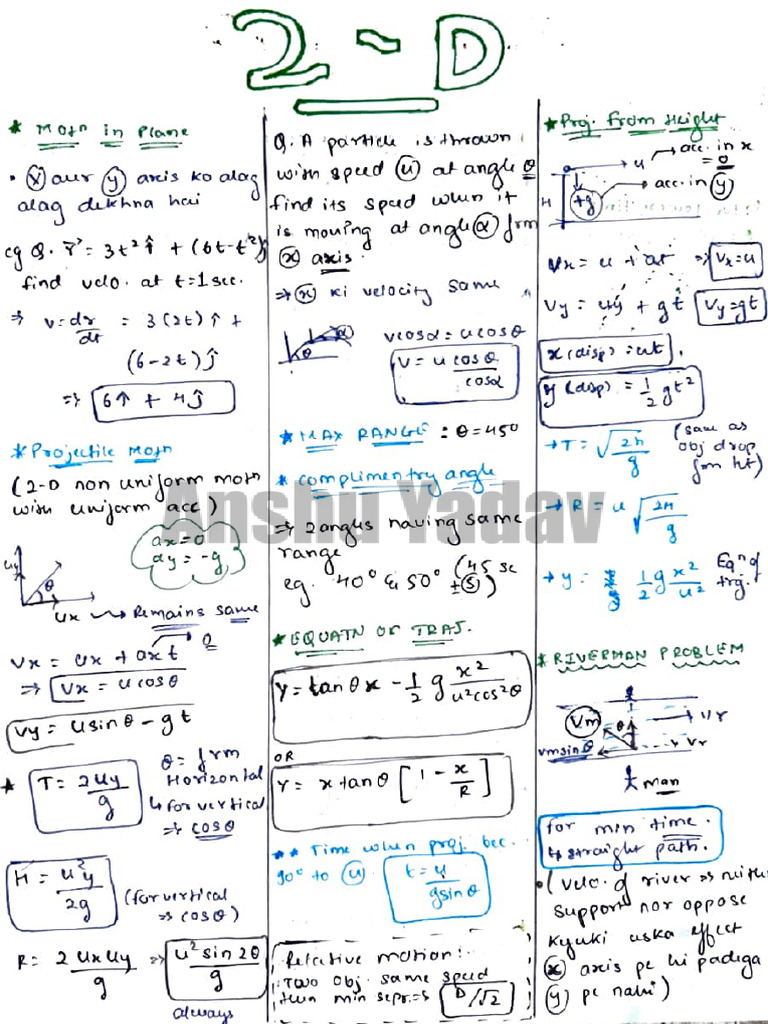 2-D
* Motn in Plane
• (x) aur (y) axis ko alag
alag dekhna hai
eg Q. r⃗ = 3t² î + (6t-t²)ĵ
find velo. at t=1 sec.
⇒ v = dr/dt = 3(2t) î +
(6-2t) ĵ
⇒ 6î + 4ĵ
* Projectile motn
(2-D non uniform motn
with uniform acc)
ax=0
ay=-g
uy
θ
ux ⇝ Remains same
0
vx = ux + axt
⇒ vx = ucosθ
vy = usinθ - gt
* T = 2uy/g
θ = frm
Horizontal
↳ for vertical
⇒ cosθ
H = u²y/2g
(for vertical
⇒ cosθ)
R = 2uxuy/g ⇒ u²sin2θ/g
always
Q. A particle is thrown
with speed (u) at angle θ
find its speed when it
is moving at angle (α) frm
(x) axis.
⇒ (x) ki velocity same
θ α
vcosα = ucosθ
v = u cosθ/cosα
* MAX RANGE : θ=450
* complimentry angle
Anshu Yadav
⇒ 2 angles having same
range
eg. 40° & 50° (45 se
±(5))
* EQUATN OF TRAJ.
Y = tanθx - 1/2 g x²/u²cos²θ
OR
Y = x tanθ [1 - x/R]
** Time when proj. bec.
90° to (u) t = u/gsinθ
Relative motion:
Two obj. same speed
then min sepr. = D/√2
* Proj. from Height
u → acc. in x
= 0
H +g → acc. in (y)
vx = u + at ⇒ vx=u
vy = uy + gt vy=gt
x (disp) = ut
y (disp) = 1/2 gt²
→ T = √2h/g (same as
obj drop
frm ht)
→ R = u √2H/g
→ y = 1/2 g x²/u² Eqn of
trg.
* RIVERMAN PROBLEM
Vm θ Vr
vmsinθ Vr
man
for min time.
↳ straight path.
• (velo. of river ⇒ neither
support nor oppose
kyuki uska effect
(x) axis pe hi padega
(y) pe nahi)